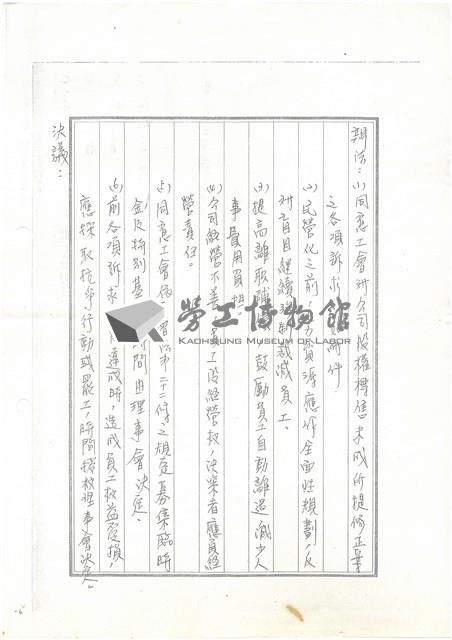 辦法：(1)同意工會對公司股權標售未成所提修正案
之各項訴求附件
(2)民營化之前，人力資源應作全面性規劃，反
對盲目繼續裁減員工。
(3)提高離取職，鼓勵員工自動離退減少人
事費用負担
(4)公司經營不善員工段經營权，決策者應負經
營責任。
(5)同意工會依第二十二條之規定募集臨時
金及特別基時間由理事會決定。
(6)前各項訴求達成時，造成員工权益受損，
應採取抗爭行動或罷工，時間授权理事會決定。
決議：
勞工博物館
KAOHSIUNG MUSEUM OF LABOR